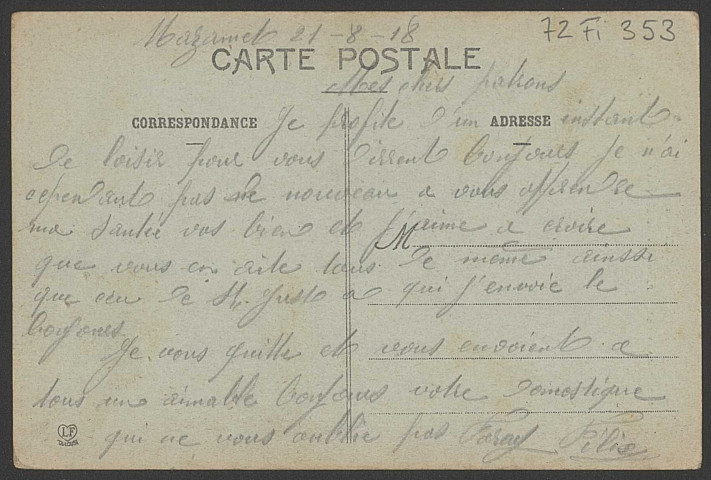 72 Fi 353
Mazamet 21-8-18
CARTE POSTALE
Mes chers patrons
CORRESPONDANCE
ADRESSE
Je profite d'un instant
de loisir pour vous dirent bonjours je n'ai
cependant pas de nouveau a vous apprendre
ma santée vas bien et j'aime a croire
M
que vous en aite tous de même ainssi
que ceu de St Just a qui j'envoie le
bonjours
Je vous quitte et vous envoient a
tous un aimable bonjours votre domestique
qui ne vous oublie pas
LF